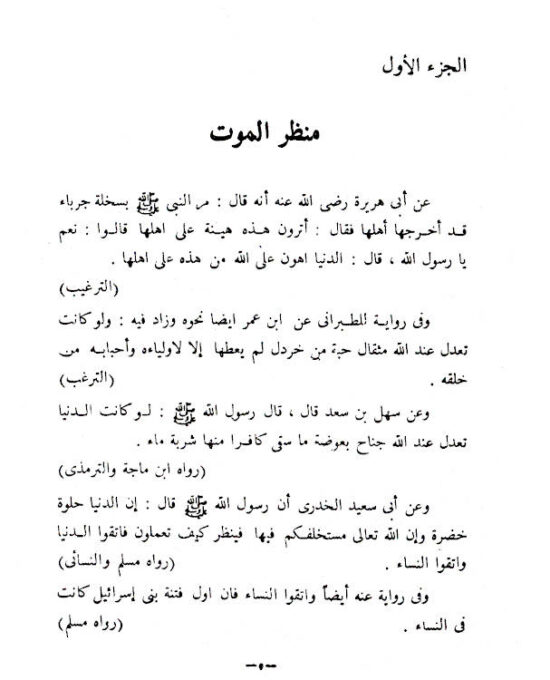 الجزء الأول
منظر الموت
عن أبى هريرة رضى الله عنه أنه قال : مر النبى ﷺ بسخلة جرباء
قد أخرجها أهلها فقال : أترون هذه هينة على اهلها قالوا : نعم
يا رسول الله ، قال : الدنيا اهون على الله من هذه على اهلها .
(الترغيب)
وفى رواية للطبرانى عن ابن عمر ايضا نحوه وزاد فيه : ولو كانت
تعدل عند الله مثقال حبة من خردل لم يعطها إلا لاولياءه وأحبابه من
خلقه . (الترغب)
وعن سهل بن سعد قال ، قال رسول الله ﷺ : لو كانت الدنيا
تعدل عند الله جناح بعوضة ما سقى كافرا منها شربة ماء .
(رواه ابن ماجة والترمذى)
وعن أبى سعيد الخدرى أن رسول الله ﷺ قال : إن الدنيا حلوة
خضرة وإن الله تعالى مستخلفكم فيها فينظر كيف تعملون فاتقوا الدنيا
واتقوا النساء . (رواه مسلم والنسائى)
وفى رواية عنه أيضاً واتقوا النساء فان اول فتنة بنى إسرائيل كانت
فى النساء . (رواه مسلم)
— ٥ —